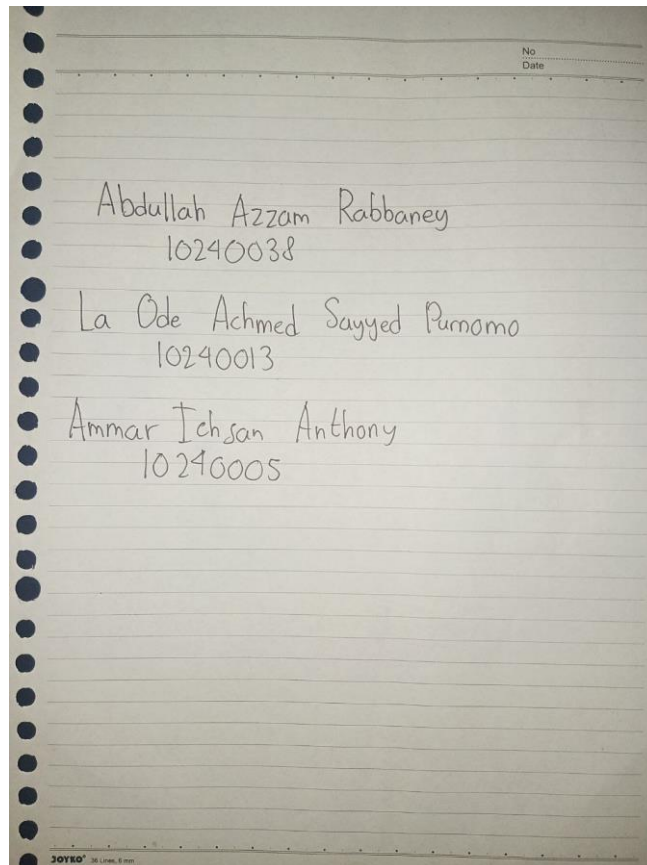 No
Date
Abdullah Azzam Rabbaney
10240038
La Ode Achmed Sayyed Purnomo
10240013
Ammar Ichsan Anthony
10240005
JOYKO 36 Lines, 6 mm